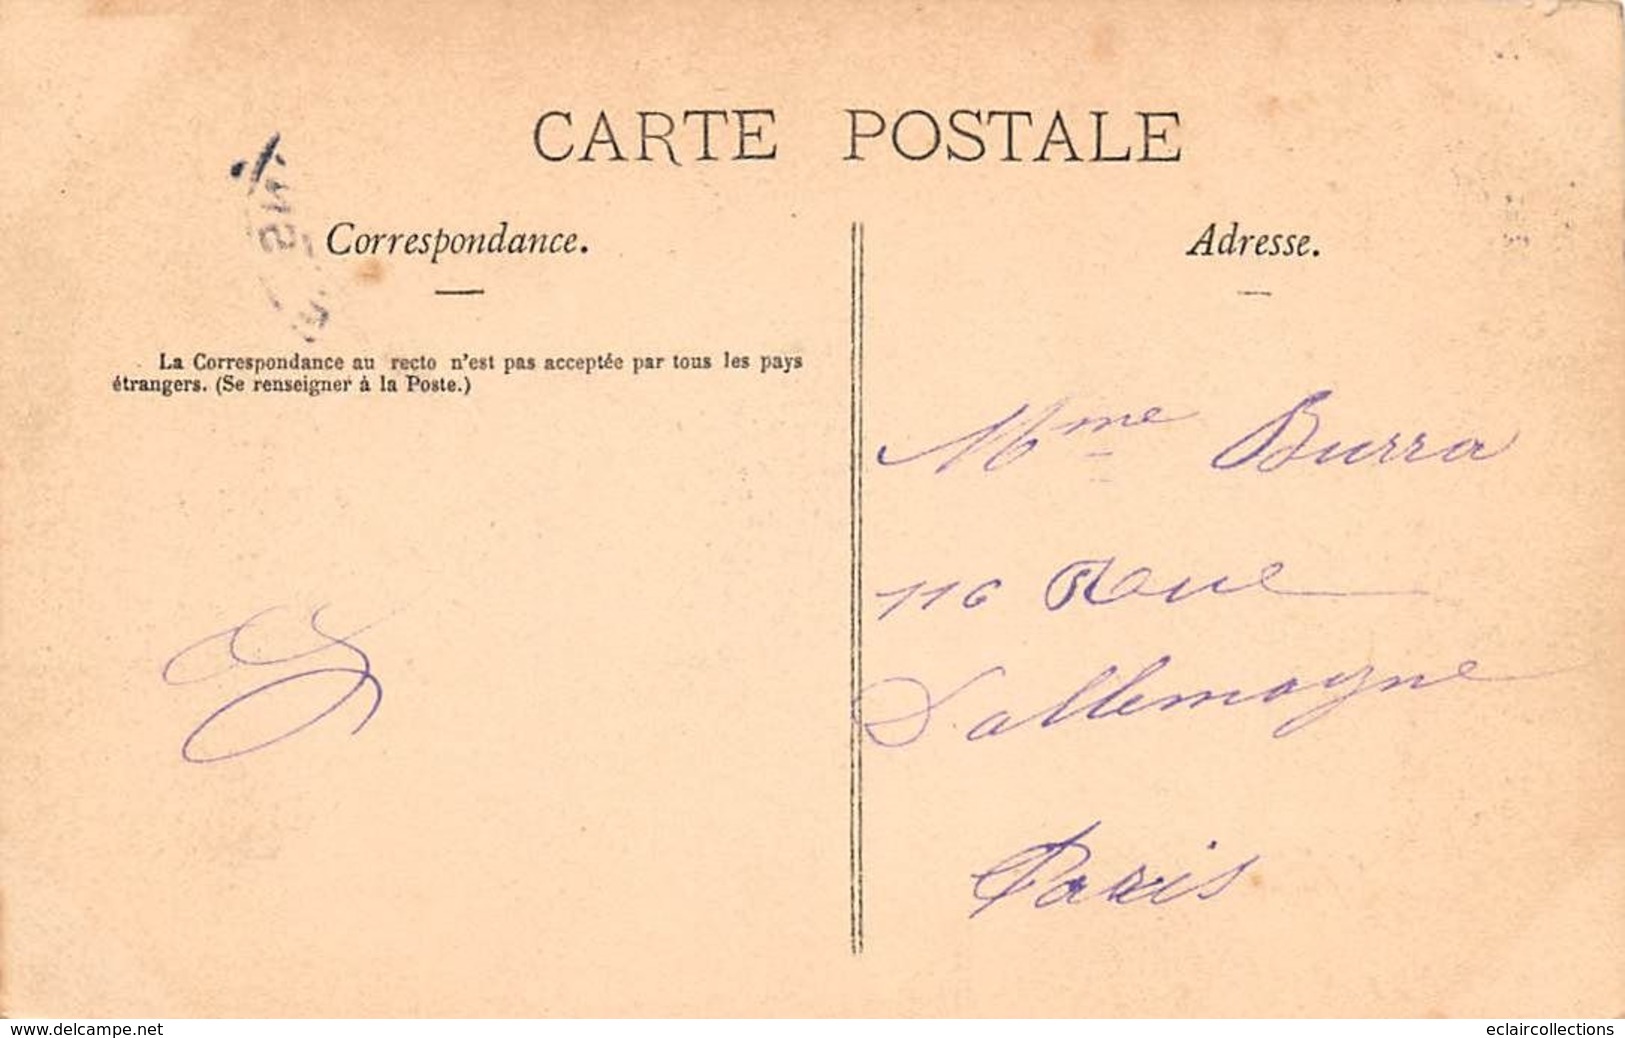 CARTE POSTALE
Correspondance.
Adresse.
La Correspondance au recto n'est pas acceptée par tous les pays
étrangers. (Se renseigner à la Poste.)
Mme Burra
116 Rue
Dallemagne
Paris
www.delcampe.net
eclaircollections